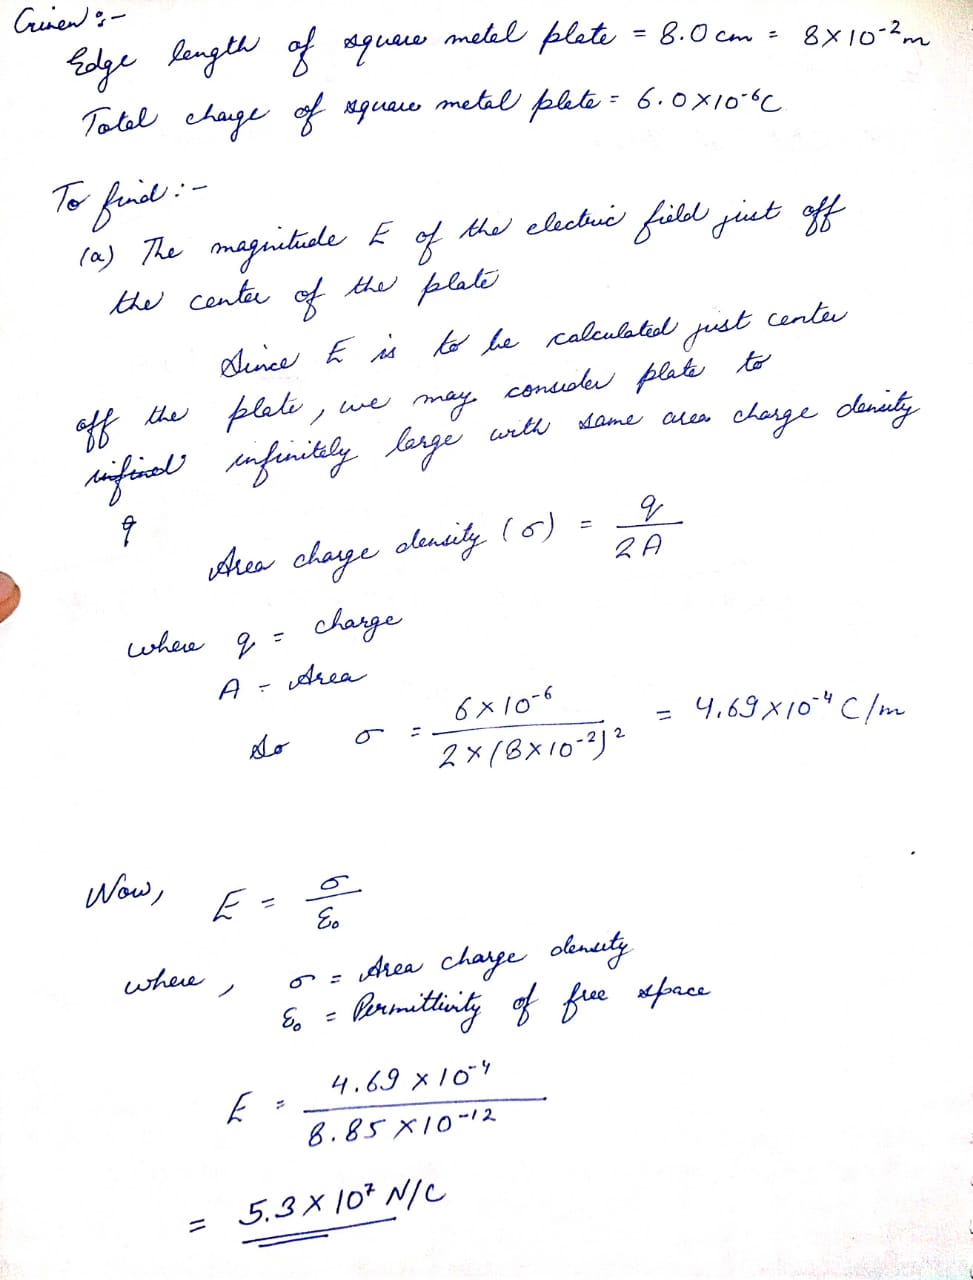 Given :-
Edge length of square metal plate = 8.0 cm = 8×10⁻² m
Total charge of square metal plate = 6.0×10⁻⁶C
To find :-
(a) The magnitude E of the electric field just off
the center of the plate
Since E is to be calculated just center
off the plate, we may consider plate to
infinitely large with same area charge density
q
Area charge density (σ) = q / 2A
where q = charge
A = Area
So σ = 6×10⁻⁶ / 2×(8×10⁻²)² = 4.69×10⁻⁴ C/m
Now, E = σ / ε₀
where, σ = Area charge density
ε₀ = Permittivity of free space
E = 4.69×10⁻⁴ / 8.85×10⁻¹²
= 5.3×10⁷ N/C